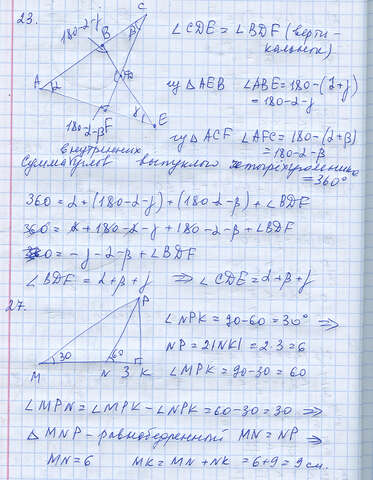 23.
C
180-α-γ
B
β
D
A
α
180-α-β
F
γ
E
∠CDE = ∠BDF (верти-
кальных)
из △AEB ∠ABE = 180-(α+γ)
= 180-α-γ
из △ACF ∠AFC = 180-(α+β)
= 180-α-β
внутренних
Сумма углов выпуклого четырёхугольника
= 360°
360 = α + (180-α-γ) + (180-α-β) + ∠BDF
360 = α + 180-α-γ + 180-α-β + ∠BDF
0 = -γ-α-β + ∠BDF
∠BDF = α+β+γ ⇒ ∠CDE = α+β+γ
27.
P
30
60
M N 3 K
∠NPK = 90-60 = 30° ⇒
NP = 2|NK| = 2·3 = 6
∠MPK = 90-30 = 60
∠MPN = ∠MPK - ∠NPK = 60-30 = 30 ⇒
△MNP - равнобедренный MN = NP ⇒
MN = 6 MK = MN + NK = 6+9 = 9 см.